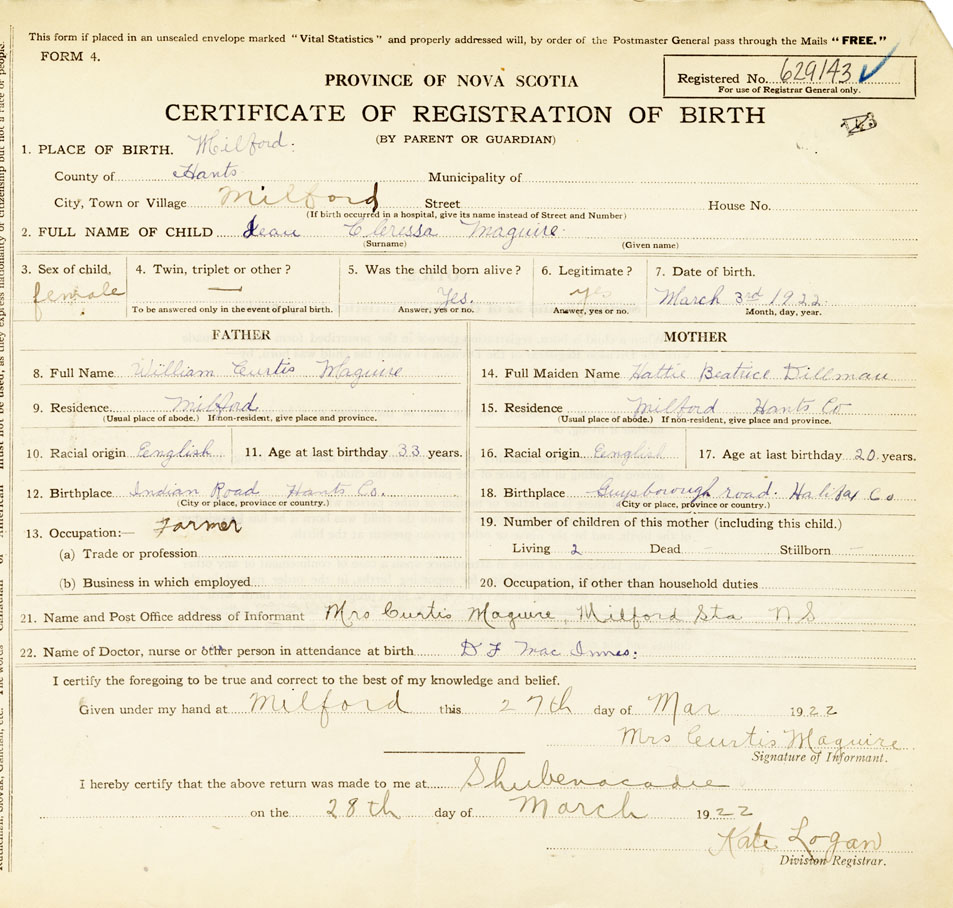 This form if placed in an unsealed envelope marked "Vital Statistics" and properly addressed will, by order of the Postmaster General pass through the Mails "FREE."
FORM 4.
PROVINCE OF NOVA SCOTIA
Registered No. 629143
For use of Registrar General only.
CERTIFICATE OF REGISTRATION OF BIRTH
(BY PARENT OR GUARDIAN)
1. PLACE OF BIRTH. Milford.
County of Hants Municipality of
City, Town or Village Milford Street House No.
(If birth occurred in a hospital, give its name instead of Street and Number)
2. FULL NAME OF CHILD Jean Cleressa Maguire.
(Surname) (Given name)
3. Sex of child. 4. Twin, triplet or other? 5. Was the child born alive? 6. Legitimate? 7. Date of birth.
female — Yes. yes March 3rd 1922.
To be answered only in the event of plural birth. Answer, yes or no. Answer, yes or no. Month, day, year.
FATHER MOTHER
8. Full Name William Curtis Maguire 14. Full Maiden Name Hattie Beatrice Dillman
9. Residence Milford 15. Residence Milford Hants Co
(Usual place of abode.) If non-resident, give place and province. (Usual place of abode.) If non-resident, give place and province.
10. Racial origin English 11. Age at last birthday 33 years. 16. Racial origin English 17. Age at last birthday 20 years.
12. Birthplace Indian Road Hants Co. 18. Birthplace Guysborough road. Halifax Co
(City or place, province or country.) (City or place, province or country.)
13. Occupation:— Farmer 19. Number of children of this mother (including this child.)
(a) Trade or profession Living 2 Dead – Stillborn –
(b) Business in which employed 20. Occupation, if other than household duties
21. Name and Post Office address of Informant Mrs Curtis Maguire, Milford Sta N S
22. Name of Doctor, nurse or other person in attendance at birth D F Mac Innes.
I certify the foregoing to be true and correct to the best of my knowledge and belief.
Given under my hand at Milford this 27th day of Mar 1922
Mrs Curtis Maguire
Signature of Informant.
I hereby certify that the above return was made to me at Shubenacadie
on the 28th day of March 1922
Kate Logan
Division Registrar.